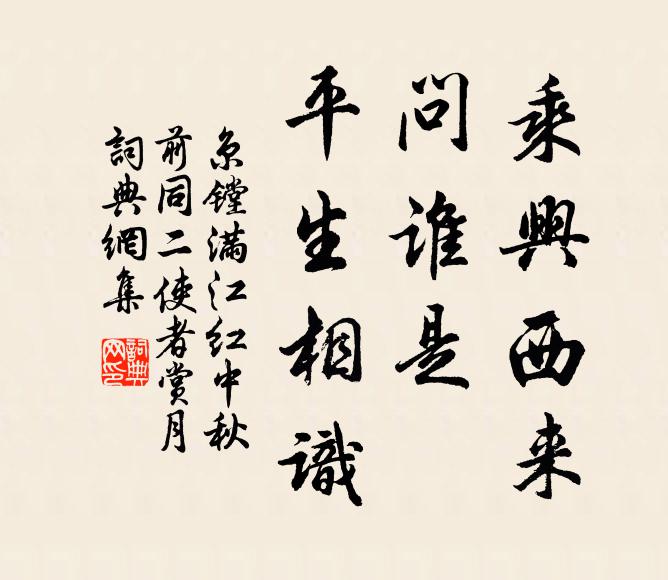 乘興西来
問谁是
平生相識
京镗满江红中秋
前同二使者赏月
詞典網集
詞典網印